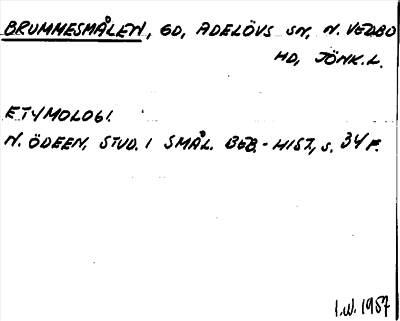 BRUMMESMÅLEN, GD, ADELÖVS SN, N. VEDBO
HD, JÖNK.L.
ETYMOLOGI.
N. ÖDEEN, STUD. I SMÅL. BEB.-HIST., s. 34 F.
I.W. 1957